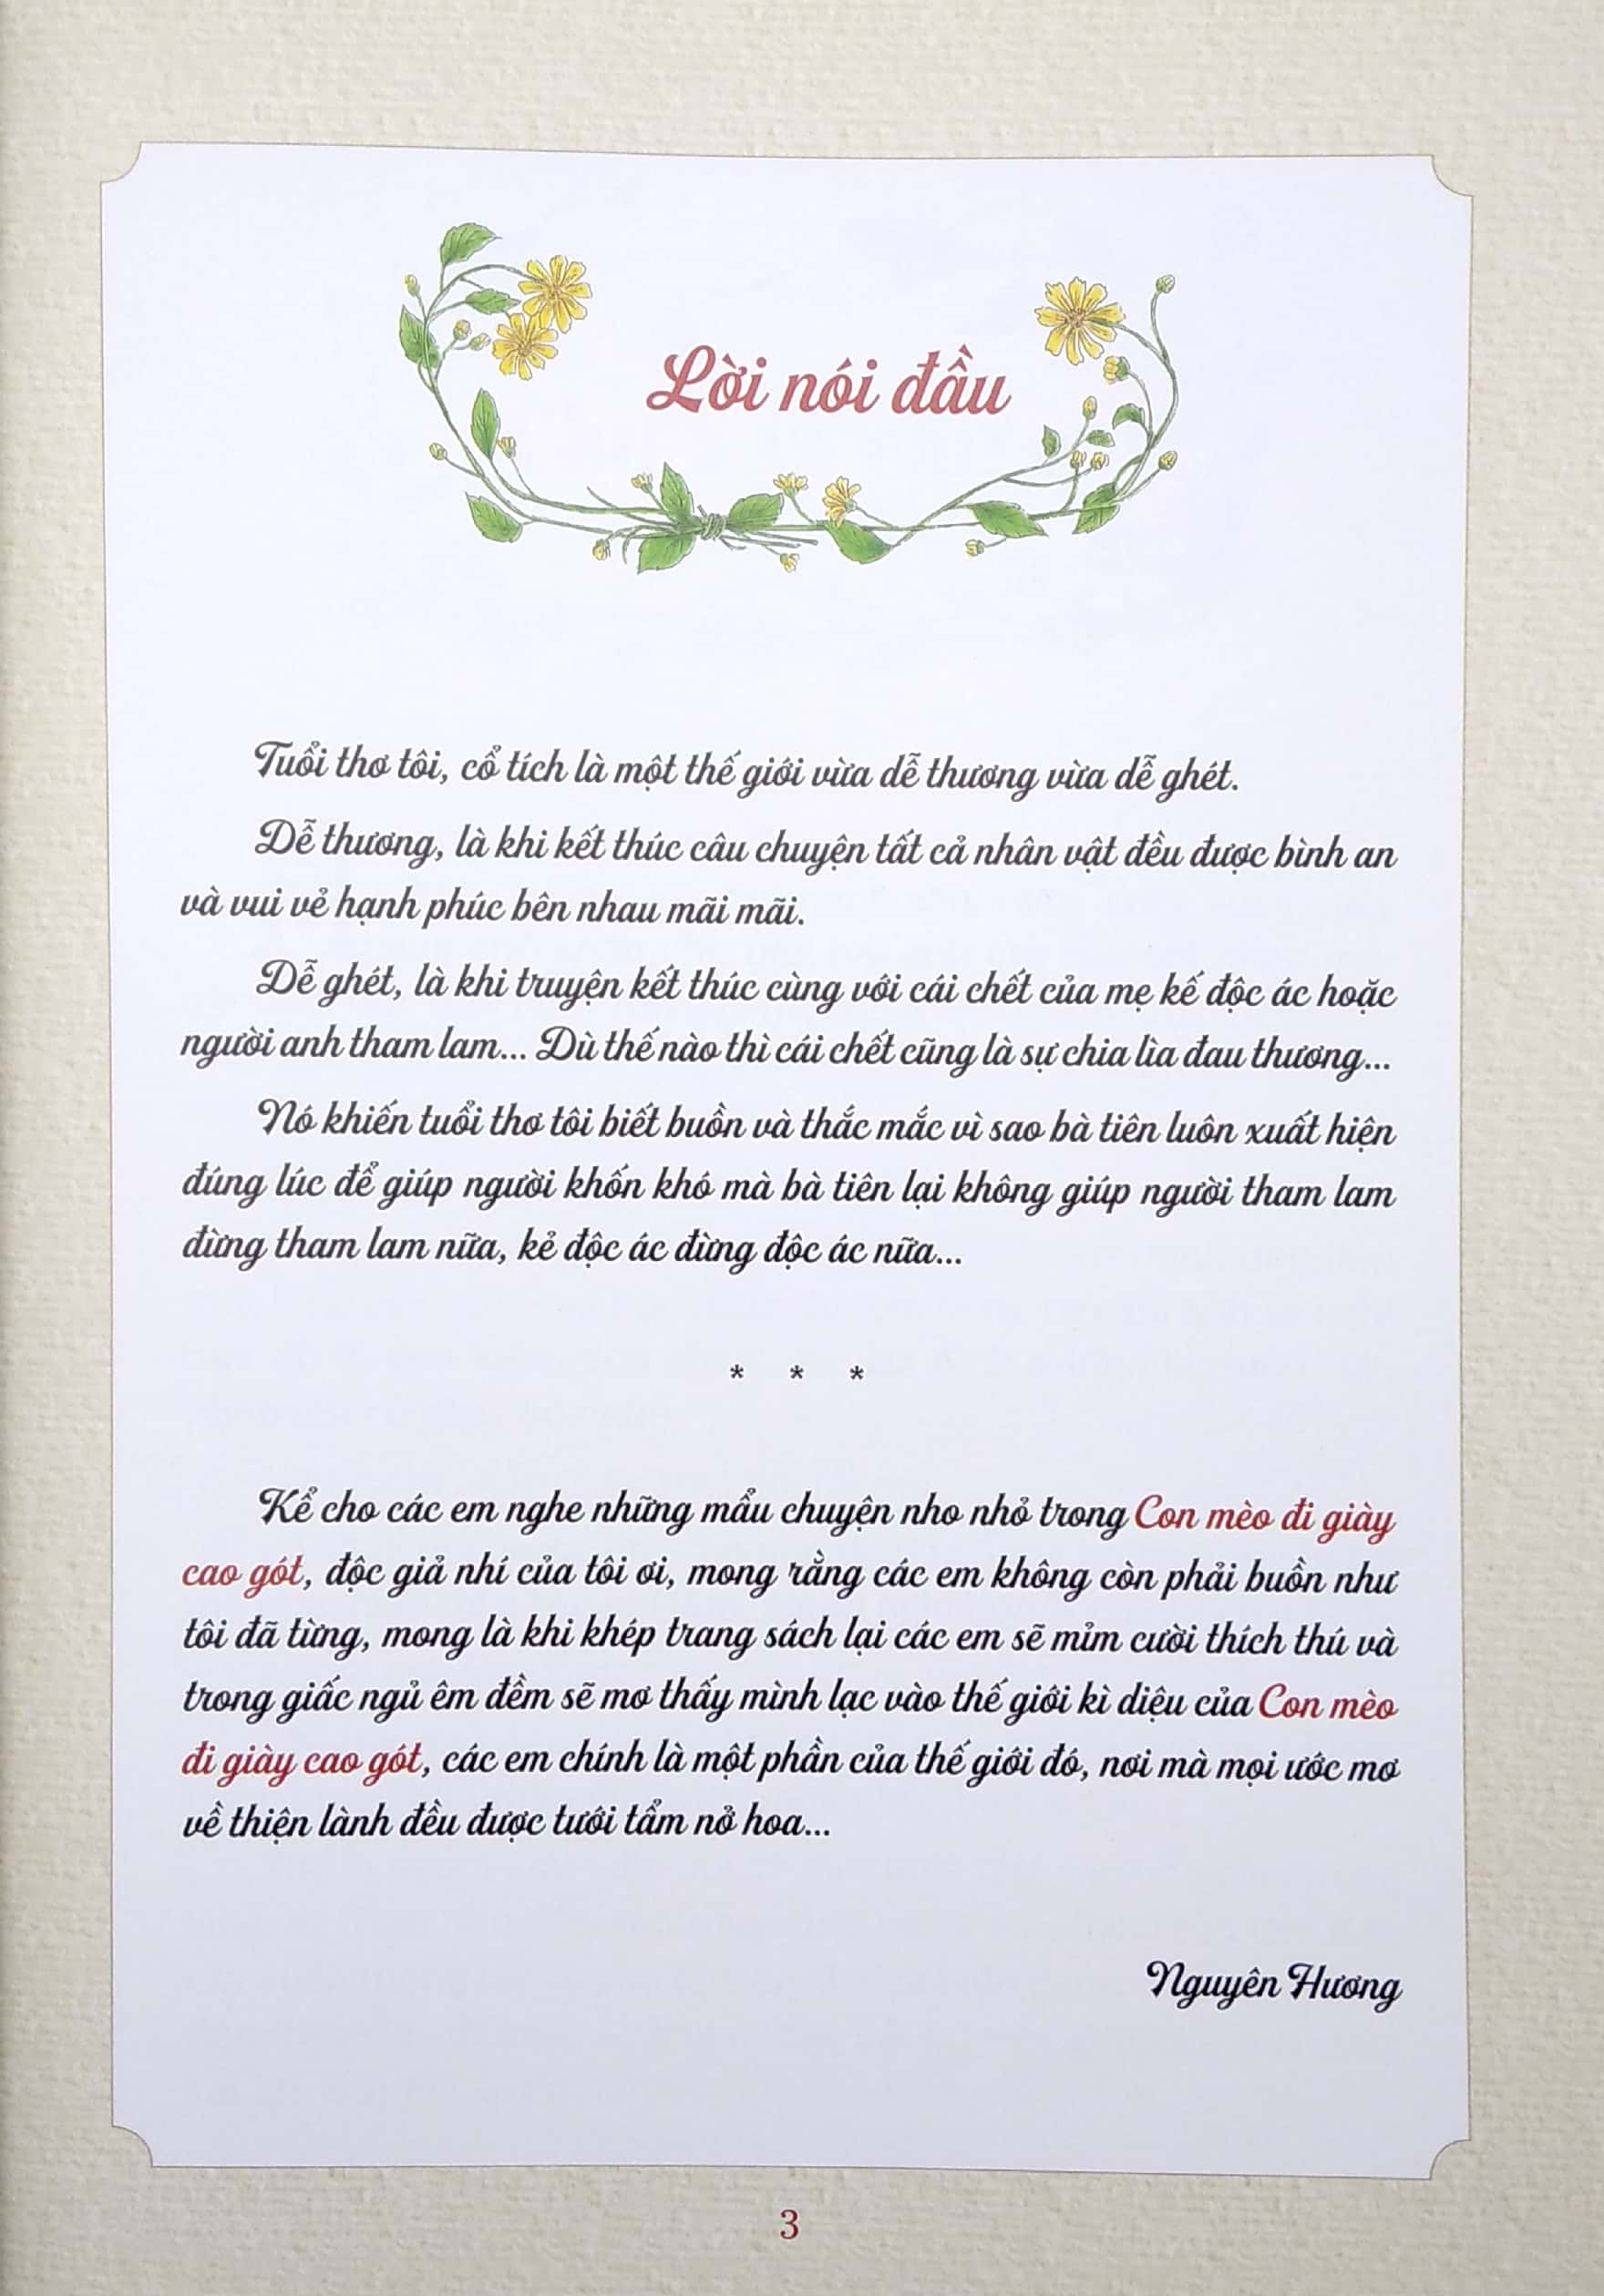 Lời nói đầu
Tuổi thơ tôi, cổ tích là một thế giới vừa dễ thương vừa dễ ghét.
Dễ thương, là khi kết thúc câu chuyện tất cả nhân vật đều được bình an
và vui vẻ hạnh phúc bên nhau mãi mãi.
Dễ ghét, là khi truyện kết thúc cùng với cái chết của mẹ kế độc ác hoặc
người anh tham lam... Dù thế nào thì cái chết cũng là sự chia lìa đau thương...
Nó khiến tuổi thơ tôi biết buồn và thắc mắc vì sao bà tiên luôn xuất hiện
đúng lúc để giúp người khốn khó mà bà tiên lại không giúp người tham lam
đừng tham lam nữa, kẻ độc ác đừng độc ác nữa...
* * *
Kể cho các em nghe những mẩu chuyện nho nhỏ trong Con mèo đi giày
cao gót, độc giả nhí của tôi ơi, mong rằng các em không còn phải buồn như
tôi đã từng, mong là khi khép trang sách lại các em sẽ mỉm cười thích thú và
trong giấc ngủ êm đềm sẽ mơ thấy mình lạc vào thế giới kì diệu của Con mèo
đi giày cao gót, các em chính là một phần của thế giới đó, nơi mà mọi ước mơ
về thiện lành đều được tưới tẩm nở hoa...
Nguyên Hương
3